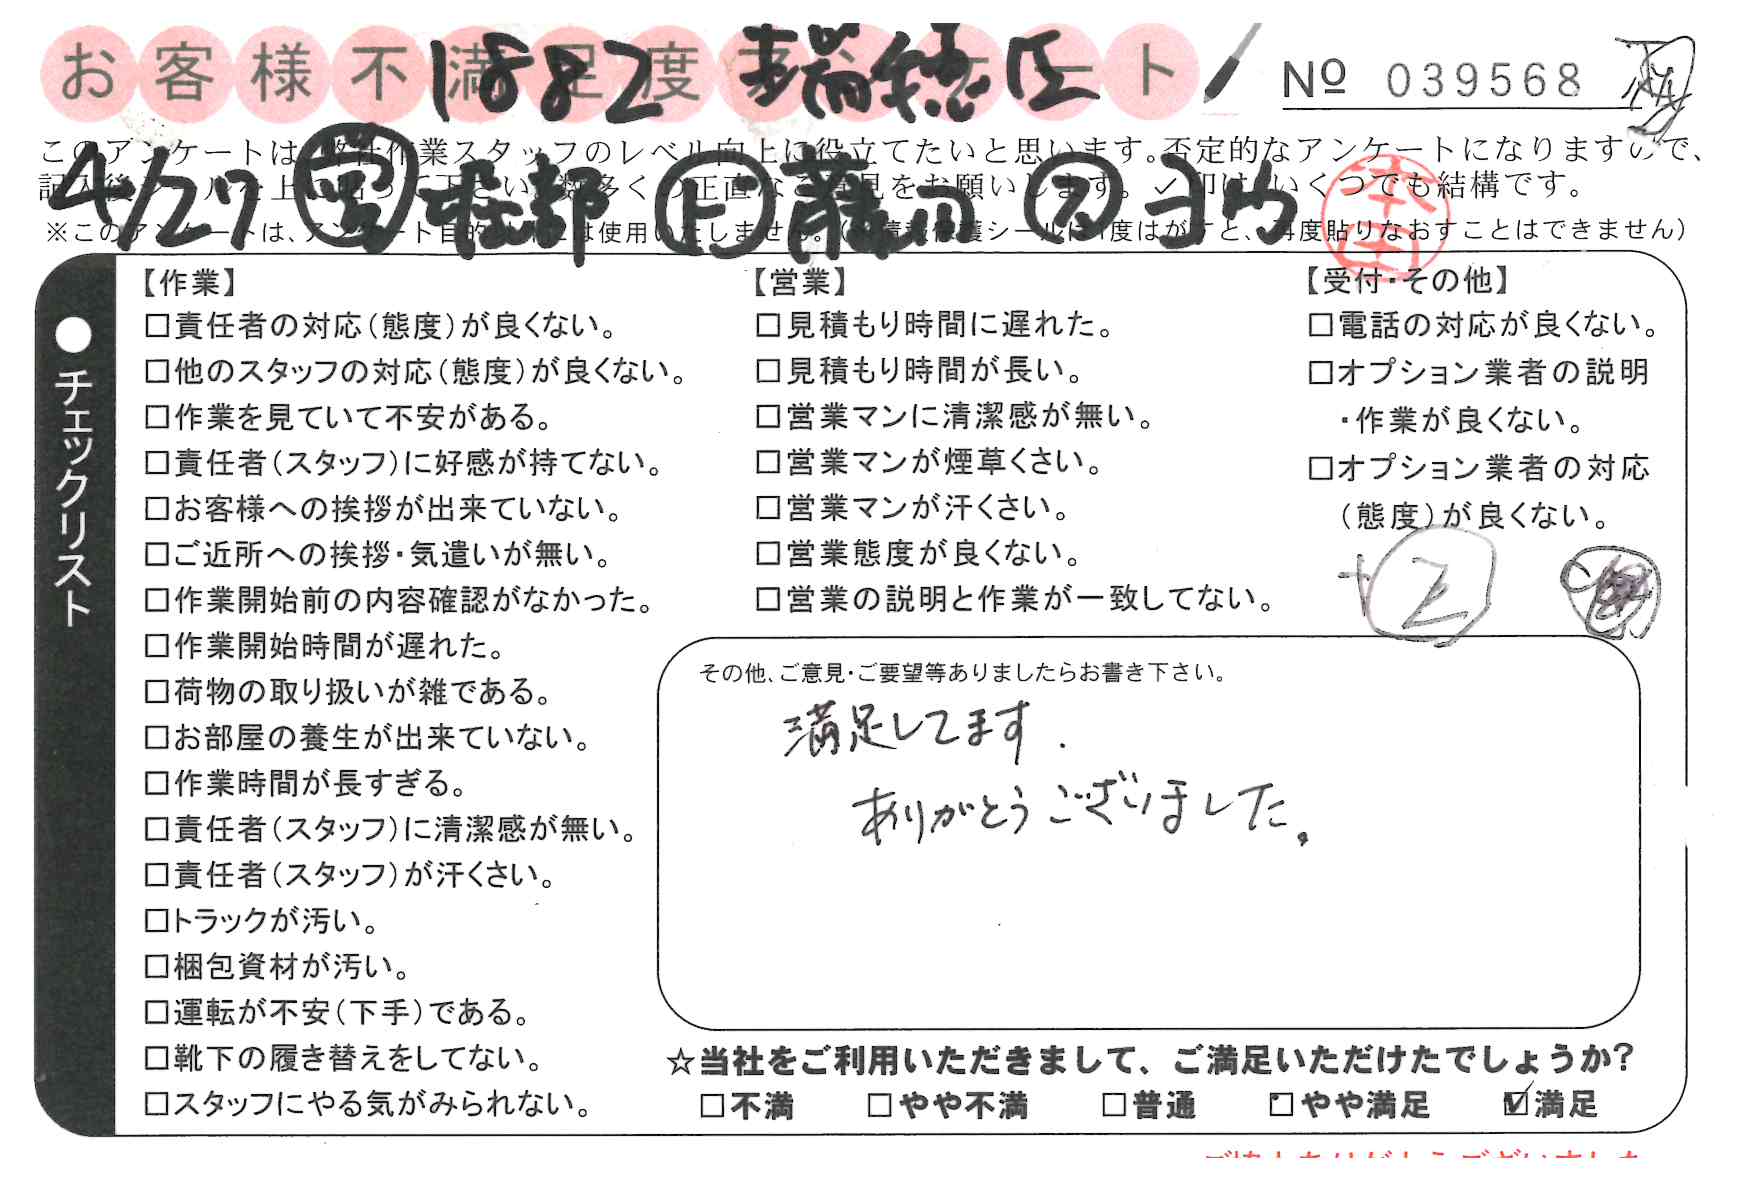 お客様不満足度アンケート
1882 瑞穂区
№ 039568
このアンケートは、弊社作業スタッフのレベル向上に役立てたいと思います。否定的なアンケートになりますので、
記入後シールを上に貼って下さい。数多くの正直なご意見をお願いします。✓印はいくつでも結構です。
4/27 営 ヒ ス ヨウ
※このアンケートは、アンケート目的以外には使用いたしません。(個人情報保護シールは1度はがすと、再度貼りなおすことはできません)
●チェックリスト
【作業】
□責任者の対応(態度)が良くない。
□他のスタッフの対応(態度)が良くない。
□作業を見ていて不安がある。
□責任者(スタッフ)に好感が持てない。
□お客様への挨拶が出来ていない。
□ご近所への挨拶・気遣いが無い。
□作業開始前の内容確認がなかった。
□作業開始時間が遅れた。
□荷物の取り扱いが雑である。
□お部屋の養生が出来ていない。
□作業時間が長すぎる。
□責任者(スタッフ)に清潔感が無い。
□責任者(スタッフ)が汗くさい。
□トラックが汚い。
□梱包資材が汚い。
□運転が不安(下手)である。
□靴下の履き替えをしてない。
□スタッフにやる気がみられない。
【営業】
□見積もり時間に遅れた。
□見積もり時間が長い。
□営業マンに清潔感が無い。
□営業マンが煙草くさい。
□営業マンが汗くさい。
□営業態度が良くない。
□営業の説明と作業が一致してない。
【受付・その他】
□電話の対応が良くない。
□オプション業者の説明
・作業が良くない。
□オプション業者の対応
(態度)が良くない。
+2
その他、ご意見・ご要望等ありましたらお書き下さい。
満足してます.
ありがとうございました。
☆当社をご利用いただきまして、ご満足いただけたでしょうか?
□不満 □やや不満 □普通 □やや満足 ☑満足